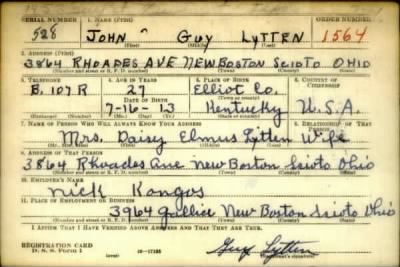 SERIAL NUMBER 1. NAME (Print) ORDER NUMBER
528 JOHN GUY LYTTEN 1564
(First) (Middle) (Last)
2. ADDRESS (Print)
3864 RHOADES AVE NEW BOSTON SCIOTO OHIO
(Number and street or R. F. D. number) (Town) (County) (State)
3. TELEPHONE 4. AGE IN YEARS 5. PLACE OF BIRTH 6. COUNTRY OF CITIZENSHIP
B. 107 R 27 Elliot Co.
DATE OF BIRTH
7-16-13 Kentucky U.S.A.
7. NAME OF PERSON WHO WILL ALWAYS KNOW YOUR ADDRESS 8. RELATIONSHIP OF THAT PERSON
Mrs. Daisy Elmus Lytten Wife
9. ADDRESS OF THAT PERSON
3864 Rhoades Ave New Boston Scioto Ohio
(Number and street or R. F. D. number) (Town) (County) (State)
10. EMPLOYER'S NAME
Nick Kongos
11. PLACE OF EMPLOYMENT OR BUSINESS
3964 Gallia New Boston Scioto Ohio
(Number and street or R. F. D. number) (Town) (County) (State)
I AFFIRM THAT I HAVE VERIFIED ABOVE ANSWERS AND THAT THEY ARE TRUE.
REGISTRATION CARD
D. S. S. Form 1 16-17105 Guy Lytten